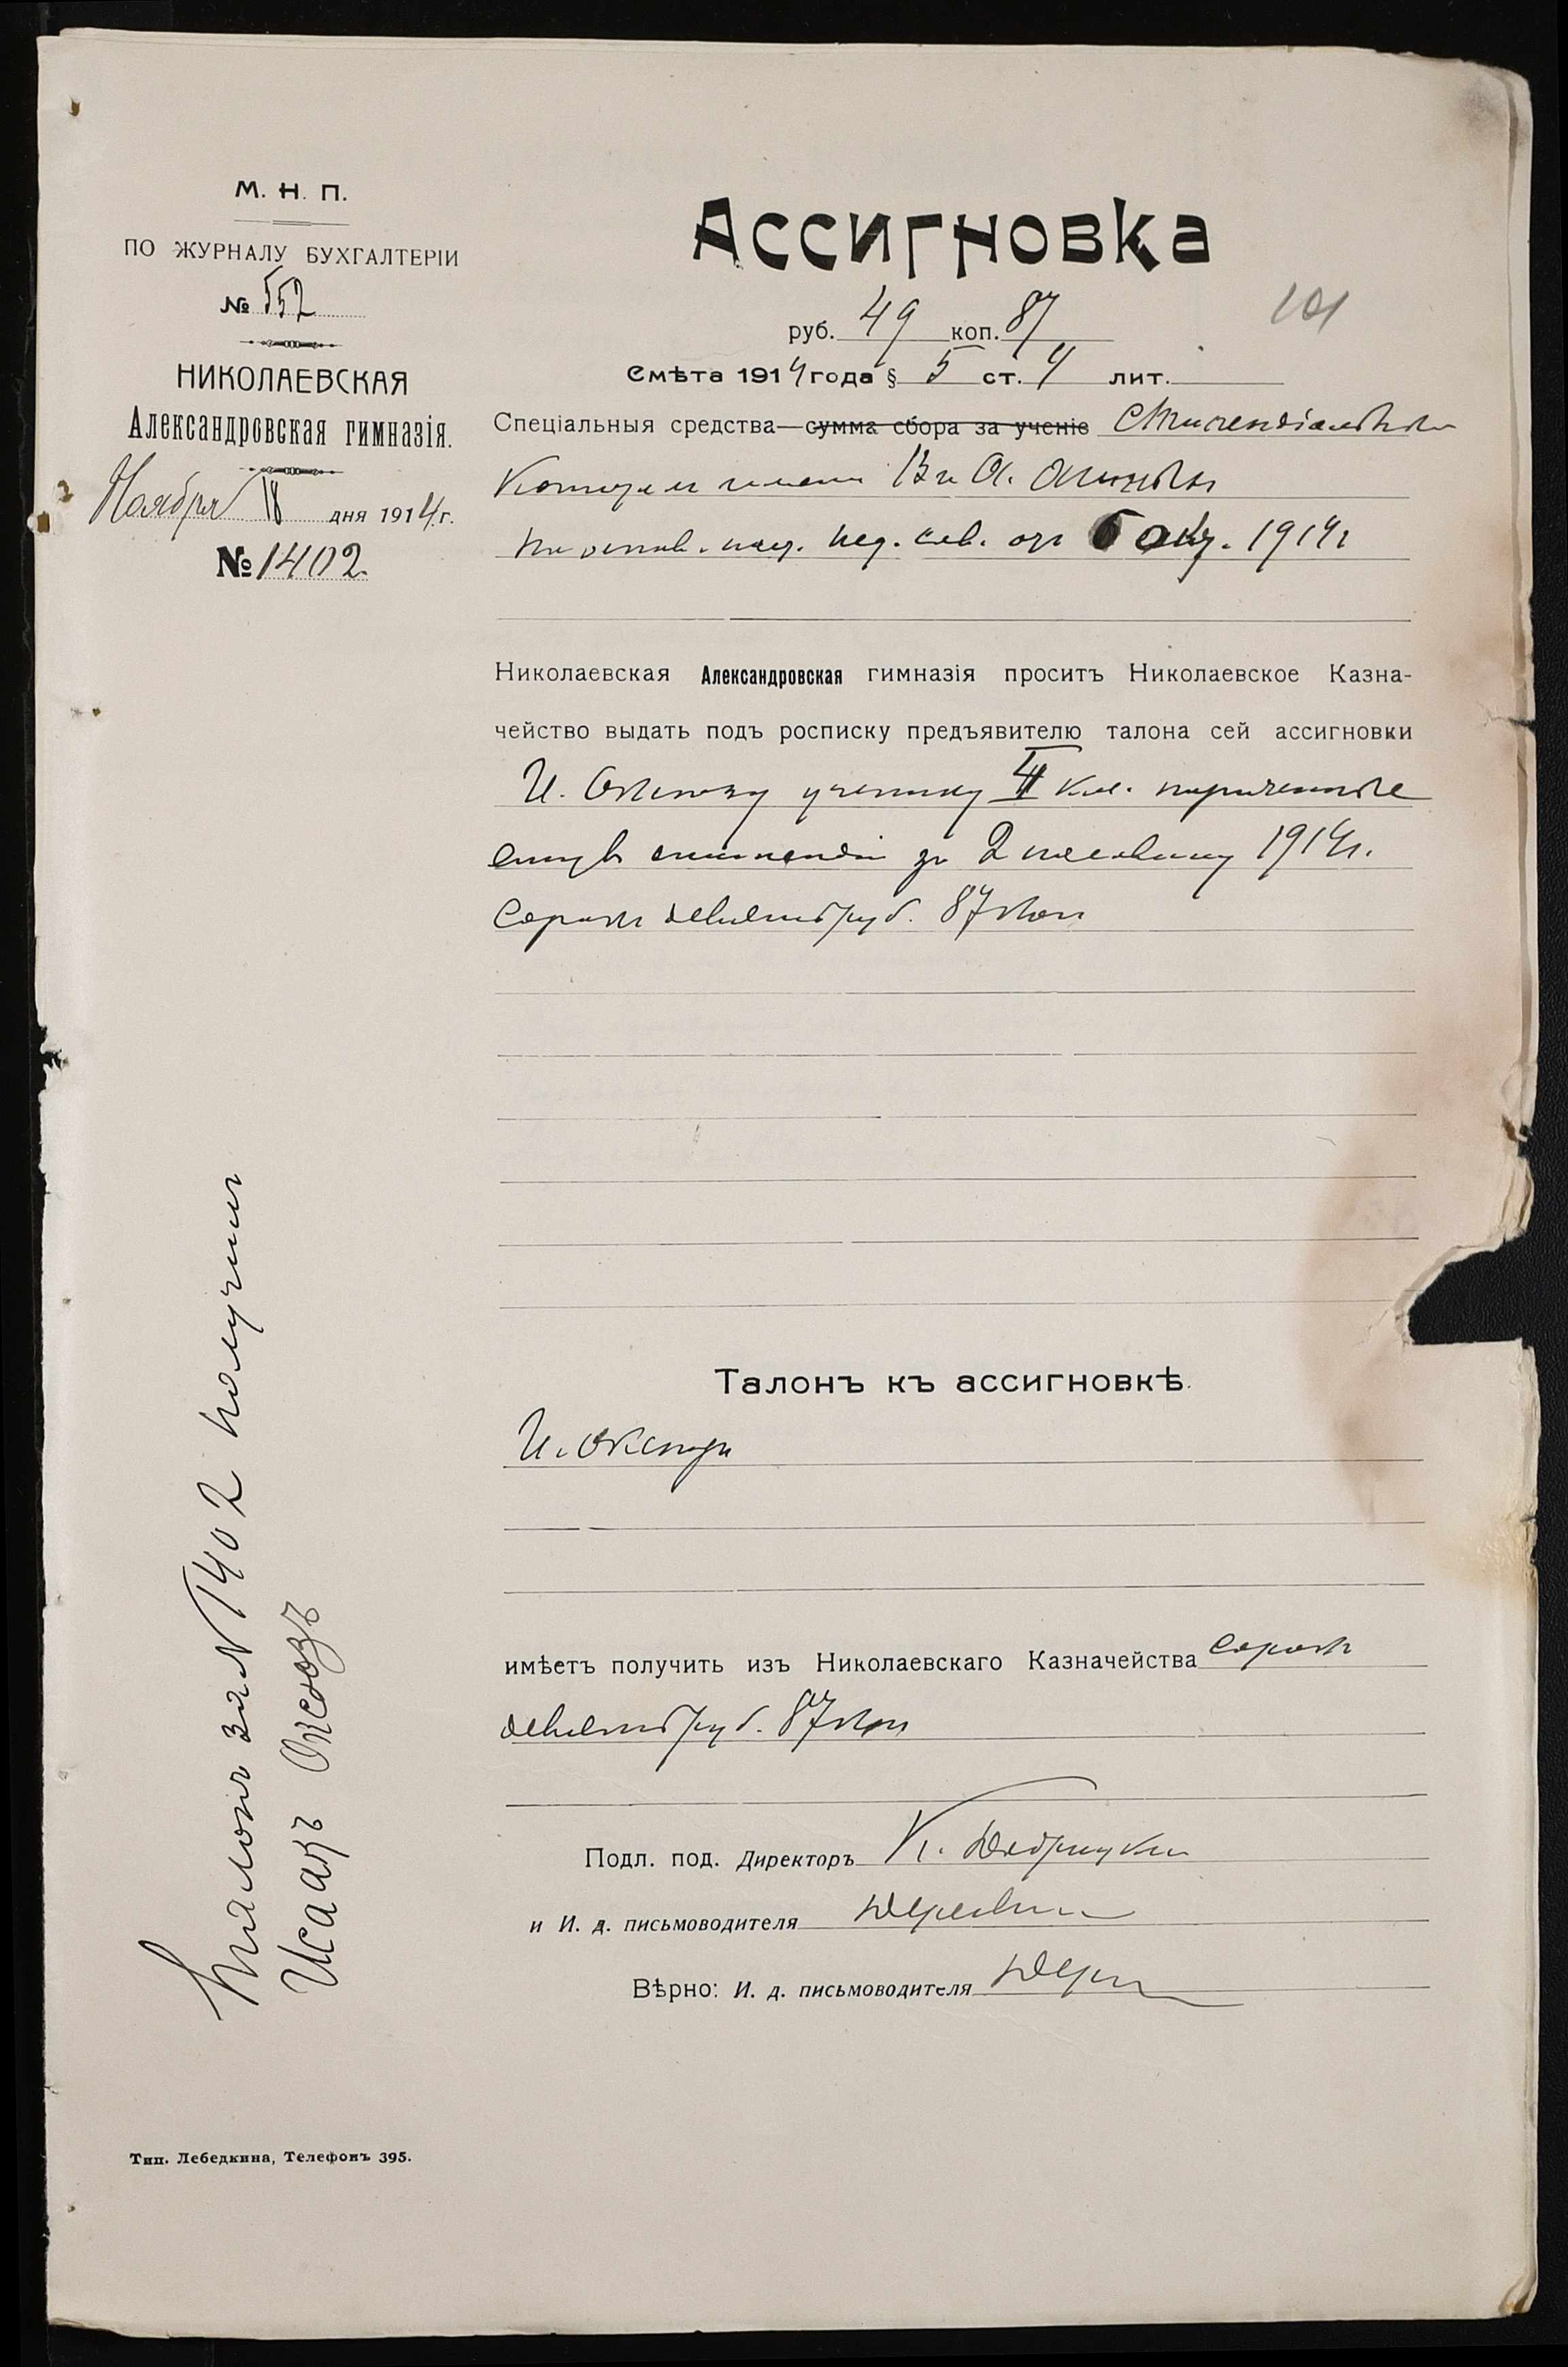 М. Н. П.
ПО ЖУРНАЛУ БУХГАЛТЕРІИ
№ 552
НИКОЛАЕВСКАЯ
Александровская гимназія.
Ноября 18 дня 1914 г.
№ 1402
Ассигновка
101
руб. 49 коп. 87
Смѣта 1914 года § 5 ст. 4 лит.
Спеціальныя средства—сумма сбора за ученіе
имени В и А.
пед. сов. от 1914 г
Николаевская Александровская гимназія проситъ Николаевское Казна-
чейство выдать подъ росписку предъявителю талона сей ассигновки
И. Оксюзу ученику кл.
ему в стипендіи за 2 половину 1914 г.
Сорок девять руб. 87 коп
Талонъ къ ассигновкѣ.
И. Оксюзъ
имѣетъ получить изъ Николаевскаго Казначейства Сорок
девять руб. 87 коп
Подл. под. Директоръ К.
и И. д. письмоводителя
Вѣрно: И. д. письмоводителя
Талонъ за № 1402 получилъ
Исаакъ Оксюзъ
Тип. Лебедкина, Телефонъ 395.